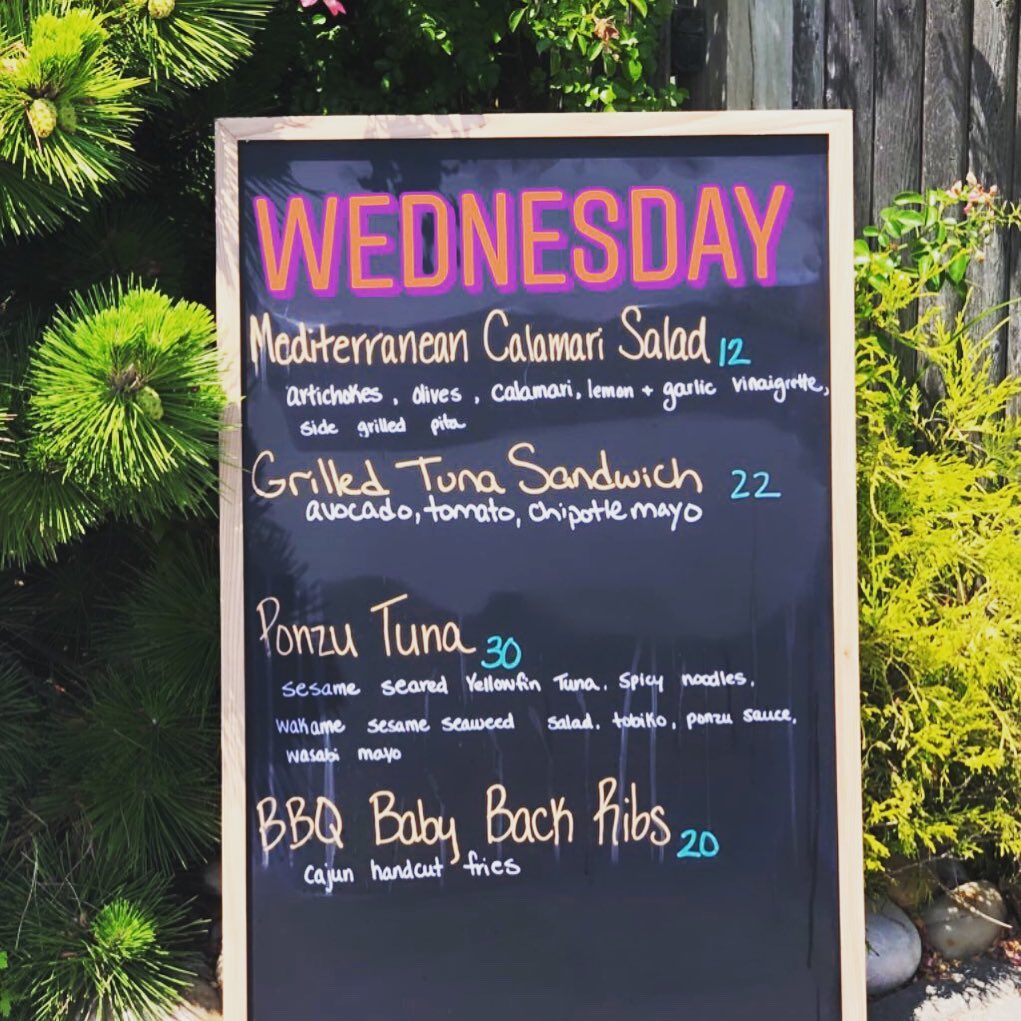 WEDNESDAY
Mediterranean Calamari Salad 12
artichokes, olives, calamari, lemon + garlic vinaigrette,
side grilled pita
Grilled Tuna Sandwich 22
avocado, tomato, chipotle mayo
Ponzu Tuna 30
sesame seared Yellowfin Tuna, spicy noodles,
wakame sesame seaweed salad, tobiko, ponzu sauce,
wasabi mayo
BBQ Baby Back Ribs 20
cajun handcut fries